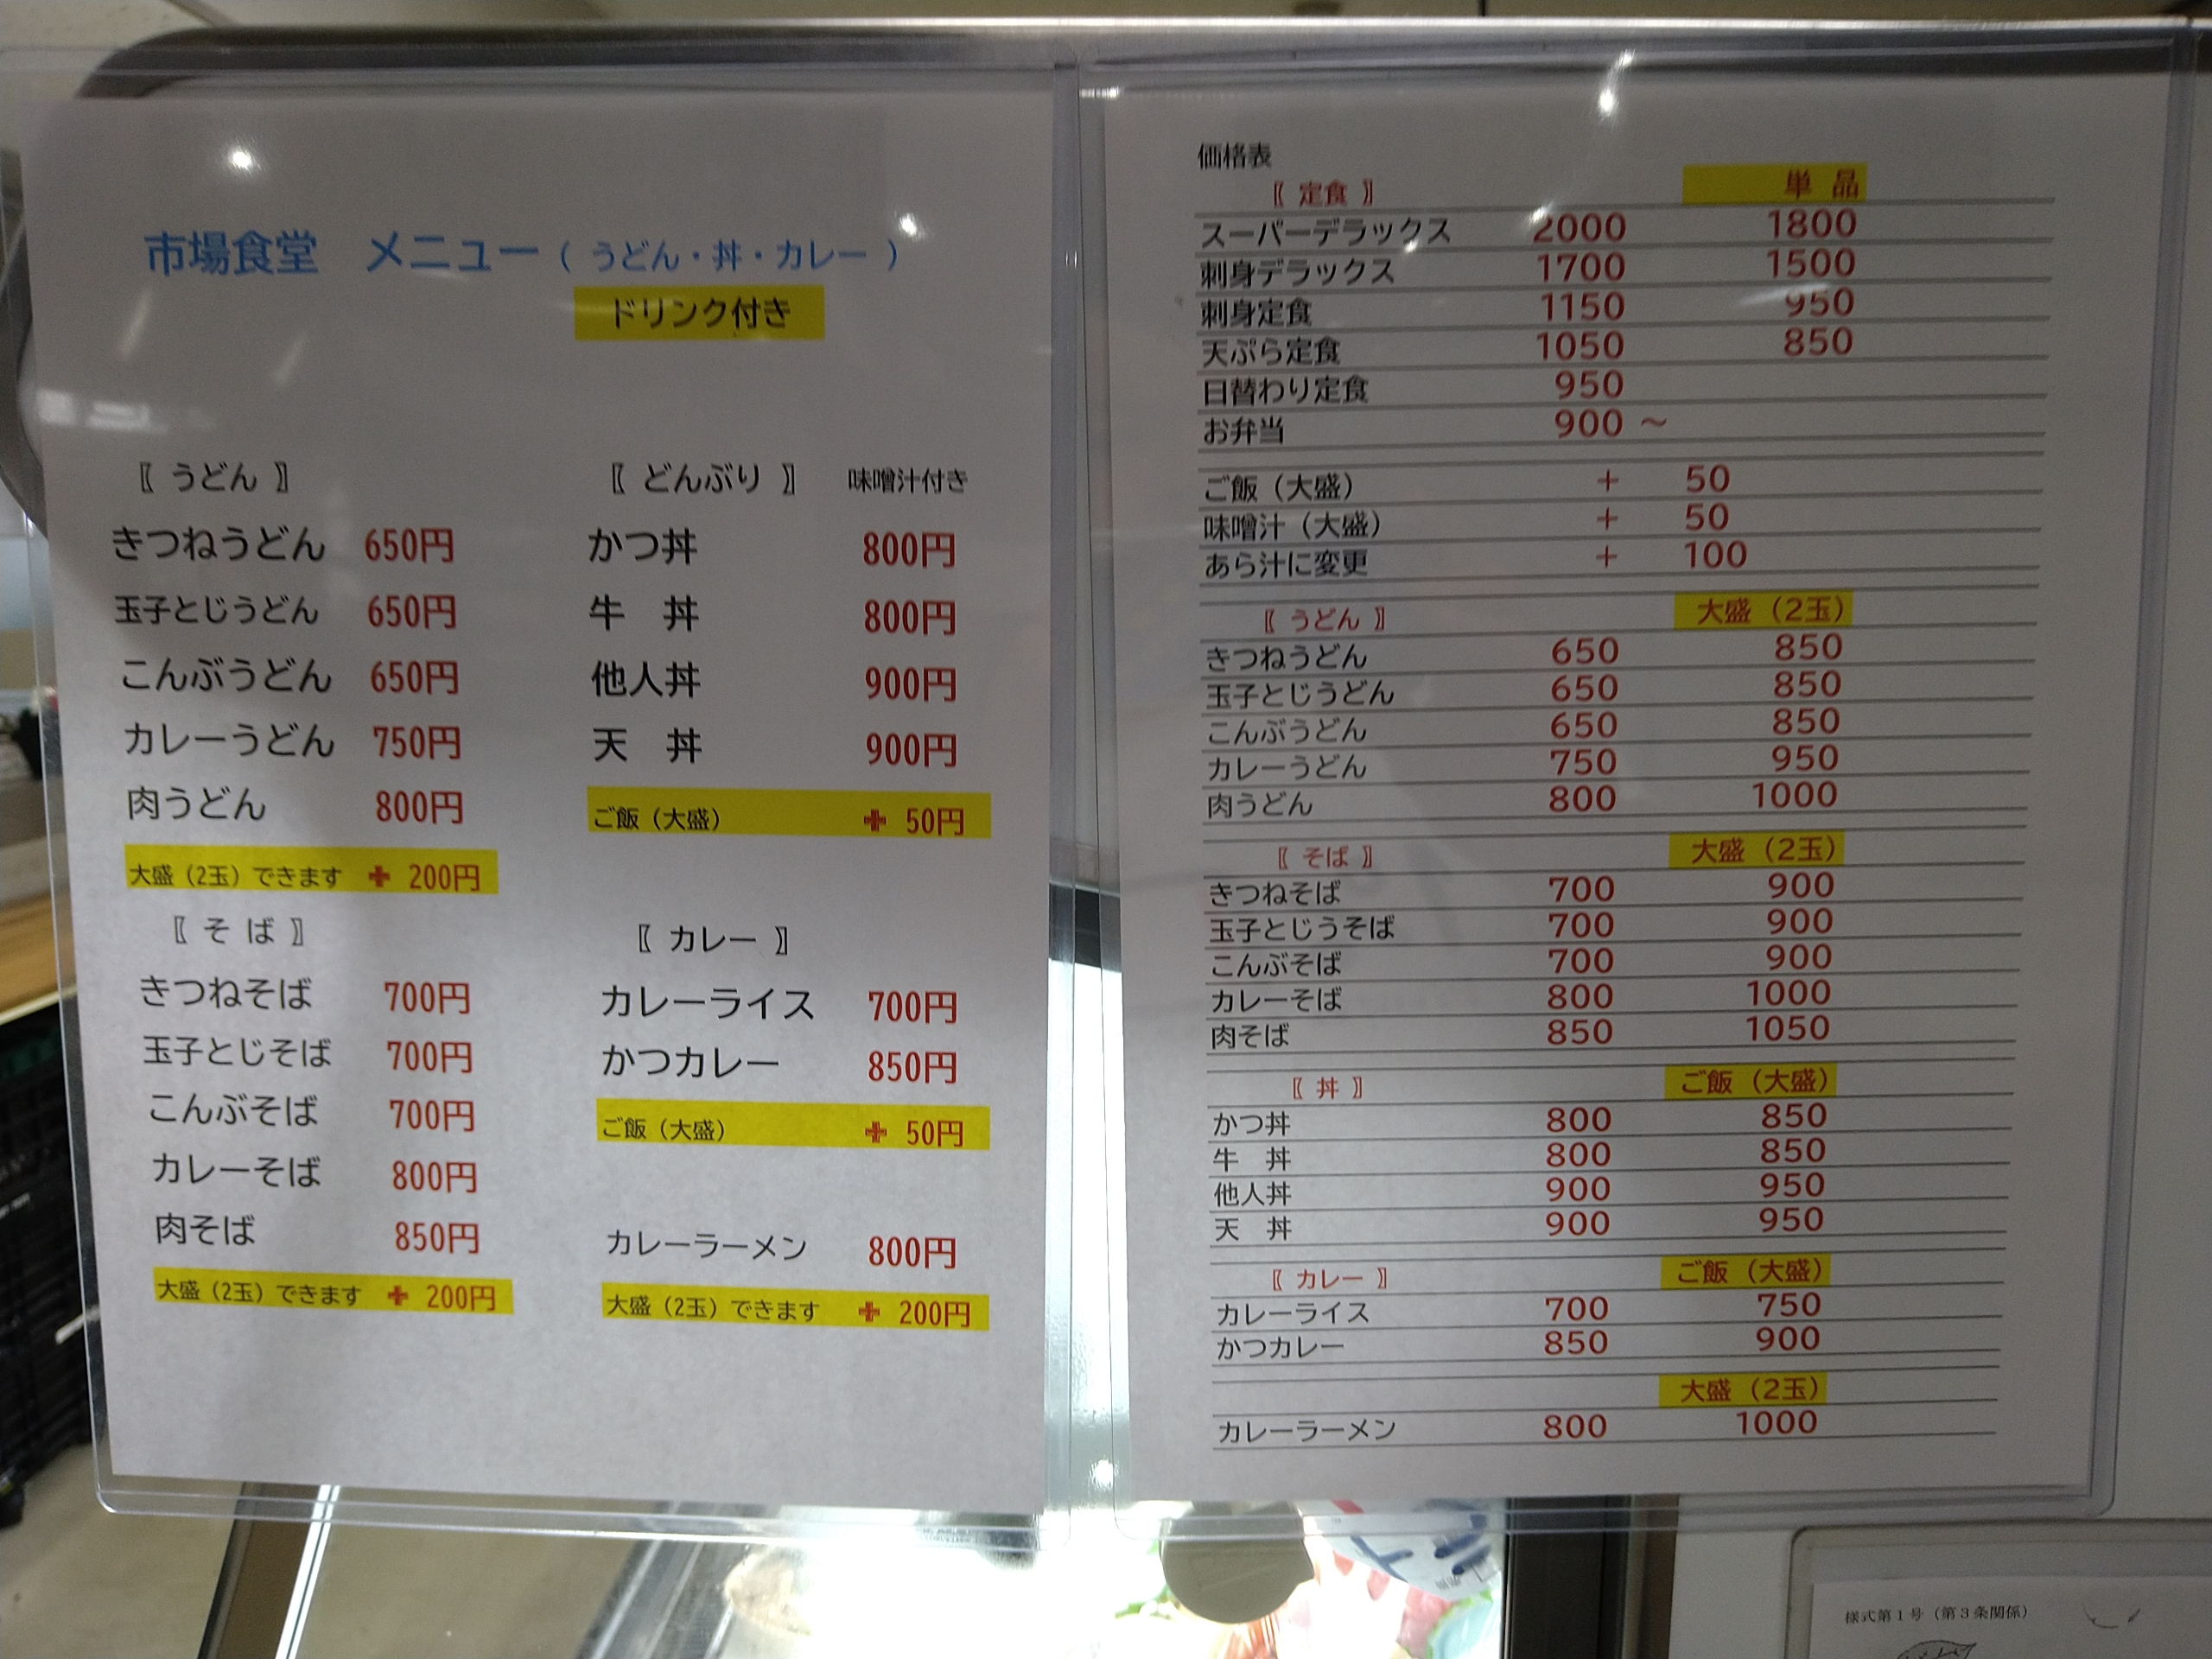 市場食堂　メニュー（ うどん・丼・カレー ）
ドリンク付き
〖 うどん 〗
きつねうどん 650円
玉子とじうどん 650円
こんぶうどん 650円
カレーうどん 750円
肉うどん 800円
大盛（2玉）できます ＋ 200円
〖 そ ば 〗
きつねそば 700円
玉子とじそば 700円
こんぶそば 700円
カレーそば 800円
肉そば 850円
大盛（2玉）できます ＋ 200円
〖 どんぶり 〗 味噌汁付き
かつ丼 800円
牛　丼 800円
他人丼 900円
天　丼 900円
ご飯（大盛） ＋ 50円
〖 カレー 〗
カレーライス 700円
かつカレー 850円
ご飯（大盛） ＋ 50円
カレーラーメン 800円
大盛（2玉）できます ＋ 200円
価格表
〖 定食 〗 単 品
スーパーデラックス 2000 1800
刺身デラックス 1700 1500
刺身定食 1150 950
天ぷら定食 1050 850
日替わり定食 950
お弁当 900 ～
ご飯（大盛） ＋ 50
味噌汁（大盛） ＋ 50
あら汁に変更 ＋ 100
〖 うどん 〗 大盛（2玉）
きつねうどん 650 850
玉子とじうどん 650 850
こんぶうどん 650 850
カレーうどん 750 950
肉うどん 800 1000
〖 そば 〗 大盛（2玉）
きつねそば 700 900
玉子とじうそば 700 900
こんぶそば 700 900
カレーそば 800 1000
肉そば 850 1050
〖 丼 〗 ご飯（大盛）
かつ丼 800 850
牛　丼 800 850
他人丼 900 950
天　丼 900 950
〖 カレー 〗 ご飯（大盛）
カレーライス 700 750
かつカレー 850 900
大盛（2玉）
カレーラーメン 800 1000
様式第１号（第３条関係）